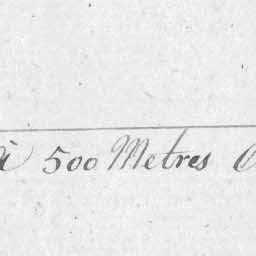 500 Metres